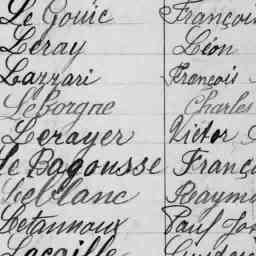 Le Gouïc François
Leray Léon
Lazzari François
Leborgne Charles
Lerayer Victor
le Bagousse Franço
Leblanc Raymo
Letannoux Paul Jos
Lacaille